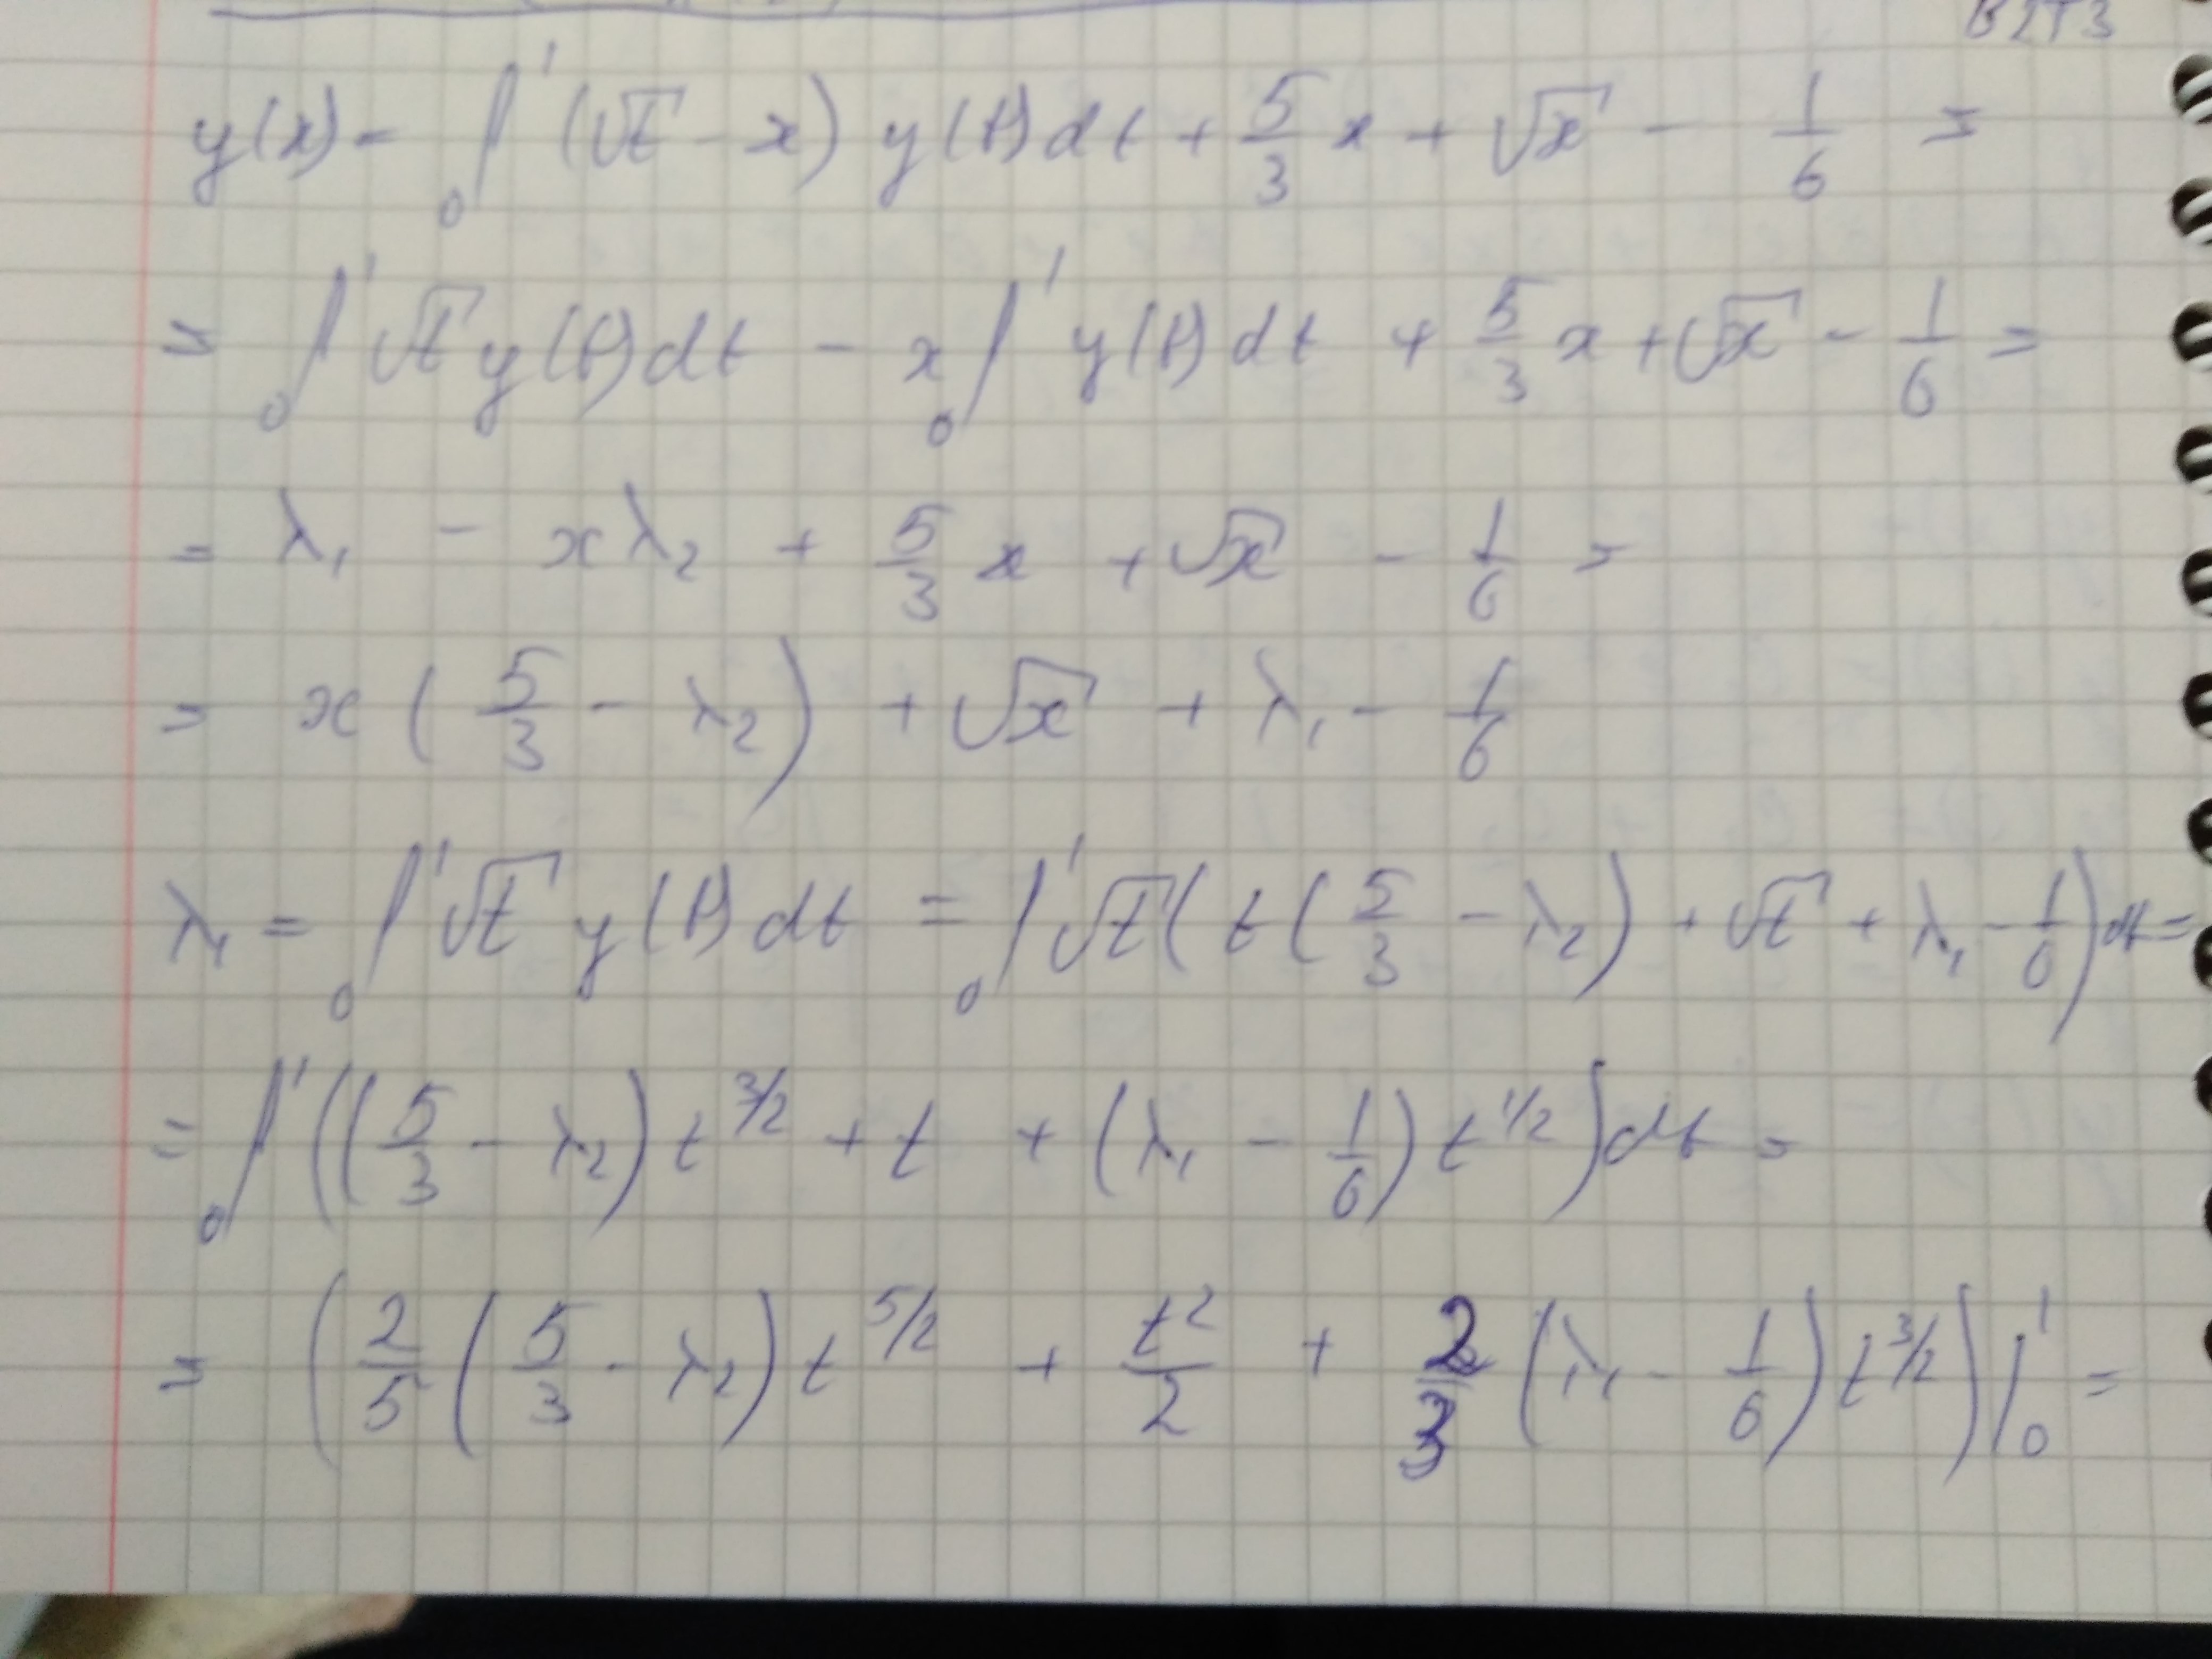 B2T3
y(x) = ₀∫¹ (√t - x) y(t)dt + 5/3 x + √x - 1/6 =
= ₀∫¹ √t y(t)dt - x ₀∫¹ y(t)dt + 5/3 x + √x - 1/6 =
= λ₁ - xλ₂ + 5/3 x + √x - 1/6 =
= x(5/3 - λ₂) + √x + λ₁ - 1/6
λ₁ = ₀∫¹ √t y(t)dt = ₀∫¹ √t(t(5/3 - λ₂) + √t + λ₁ - 1/6)dt =
= ₀∫¹ ((5/3 - λ₂)t^3/2 + t + (λ₁ - 1/6)t^1/2)dt =
= (2/5(5/3 - λ₂)t^5/2 + t²/2 + 2/3(λ₁ - 1/6)t^3/2)|₀¹ =